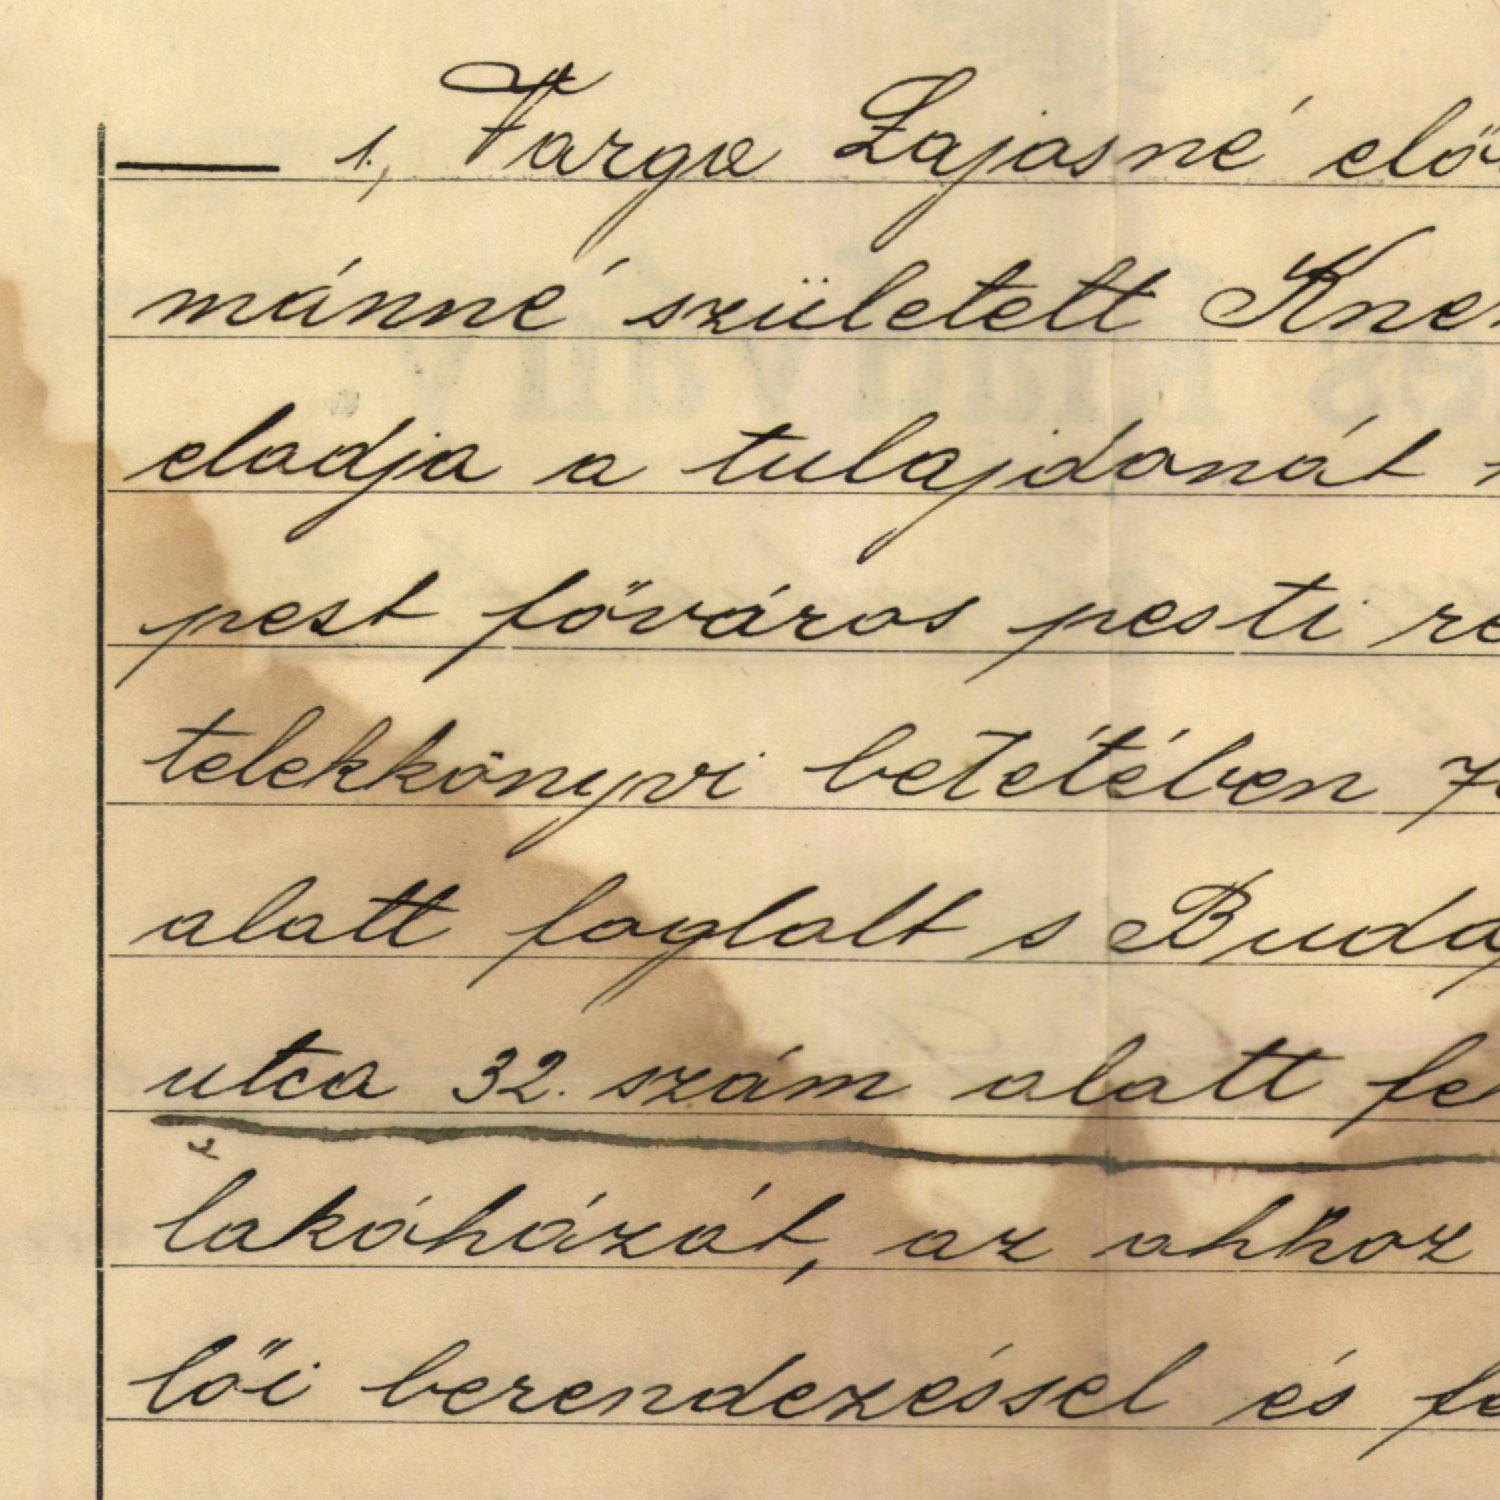 1, Varga Lajosné elő
mánné született Kne
eladja a tulajdonát
pest főváros pesti re
telekkönyvi betétében 7
alatt foglalt s Buda
utca 32. szám alatt fe
lakóházát, az ahhoz
lői berendezéssel és fe